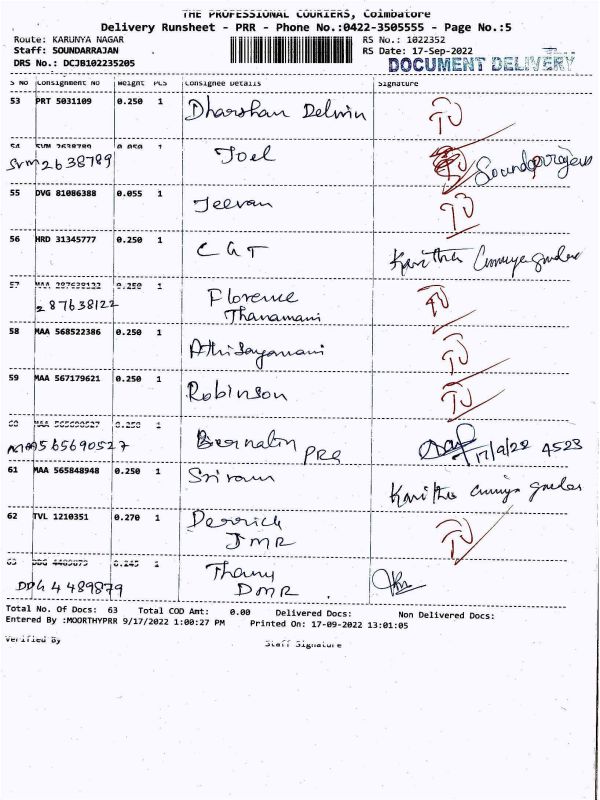 THE PROFESSIONAL COURIERS, Coimbatore
Delivery Runsheet - PRR - Phone No.:0422-3505555 - Page No.:5
Route: KARUNYA NAGAR
RS No.: 1022352
Staff: SOUNDARRAJAN
RS Date: 17-Sep-2022
DRS No.: DCJB102235205
DOCUMENT DELIVERY
S No Consignment No Weight PCS Consignee Details Signature
53 PRT 5031109 0.250 1 Dharshan Delwin
54 SVM 2638789 0.050 1 Joel
SVM2638789
55 DVG 81086388 0.055 1 Jeevan
56 HRD 31345777 0.250 1 C G T Kavitha
57 MAA 287638122 0.250 1 Florence
287638122 Thanamani
58 MAA 568522386 0.250 1 Athisayamani
59 MAA 567179621 0.250 1 Robinson
60 MAA 565690527 0.250 1
MAA565690527 PRR 17/9/22 4523
61 MAA 565848948 0.250 1 Sriram Kavitha
62 TVL 1210351 0.270 1 Derrick
JMR
63 DDG 4489879 0.145 1
DDG 4489879 DMR
Total No. Of Docs: 63 Total COD Amt: 0.00 Delivered Docs: Non Delivered Docs:
Entered By :MOORTHYPRR 9/17/2022 1:00:27 PM Printed On: 17-09-2022 13:01:05
Verified By Staff Signature